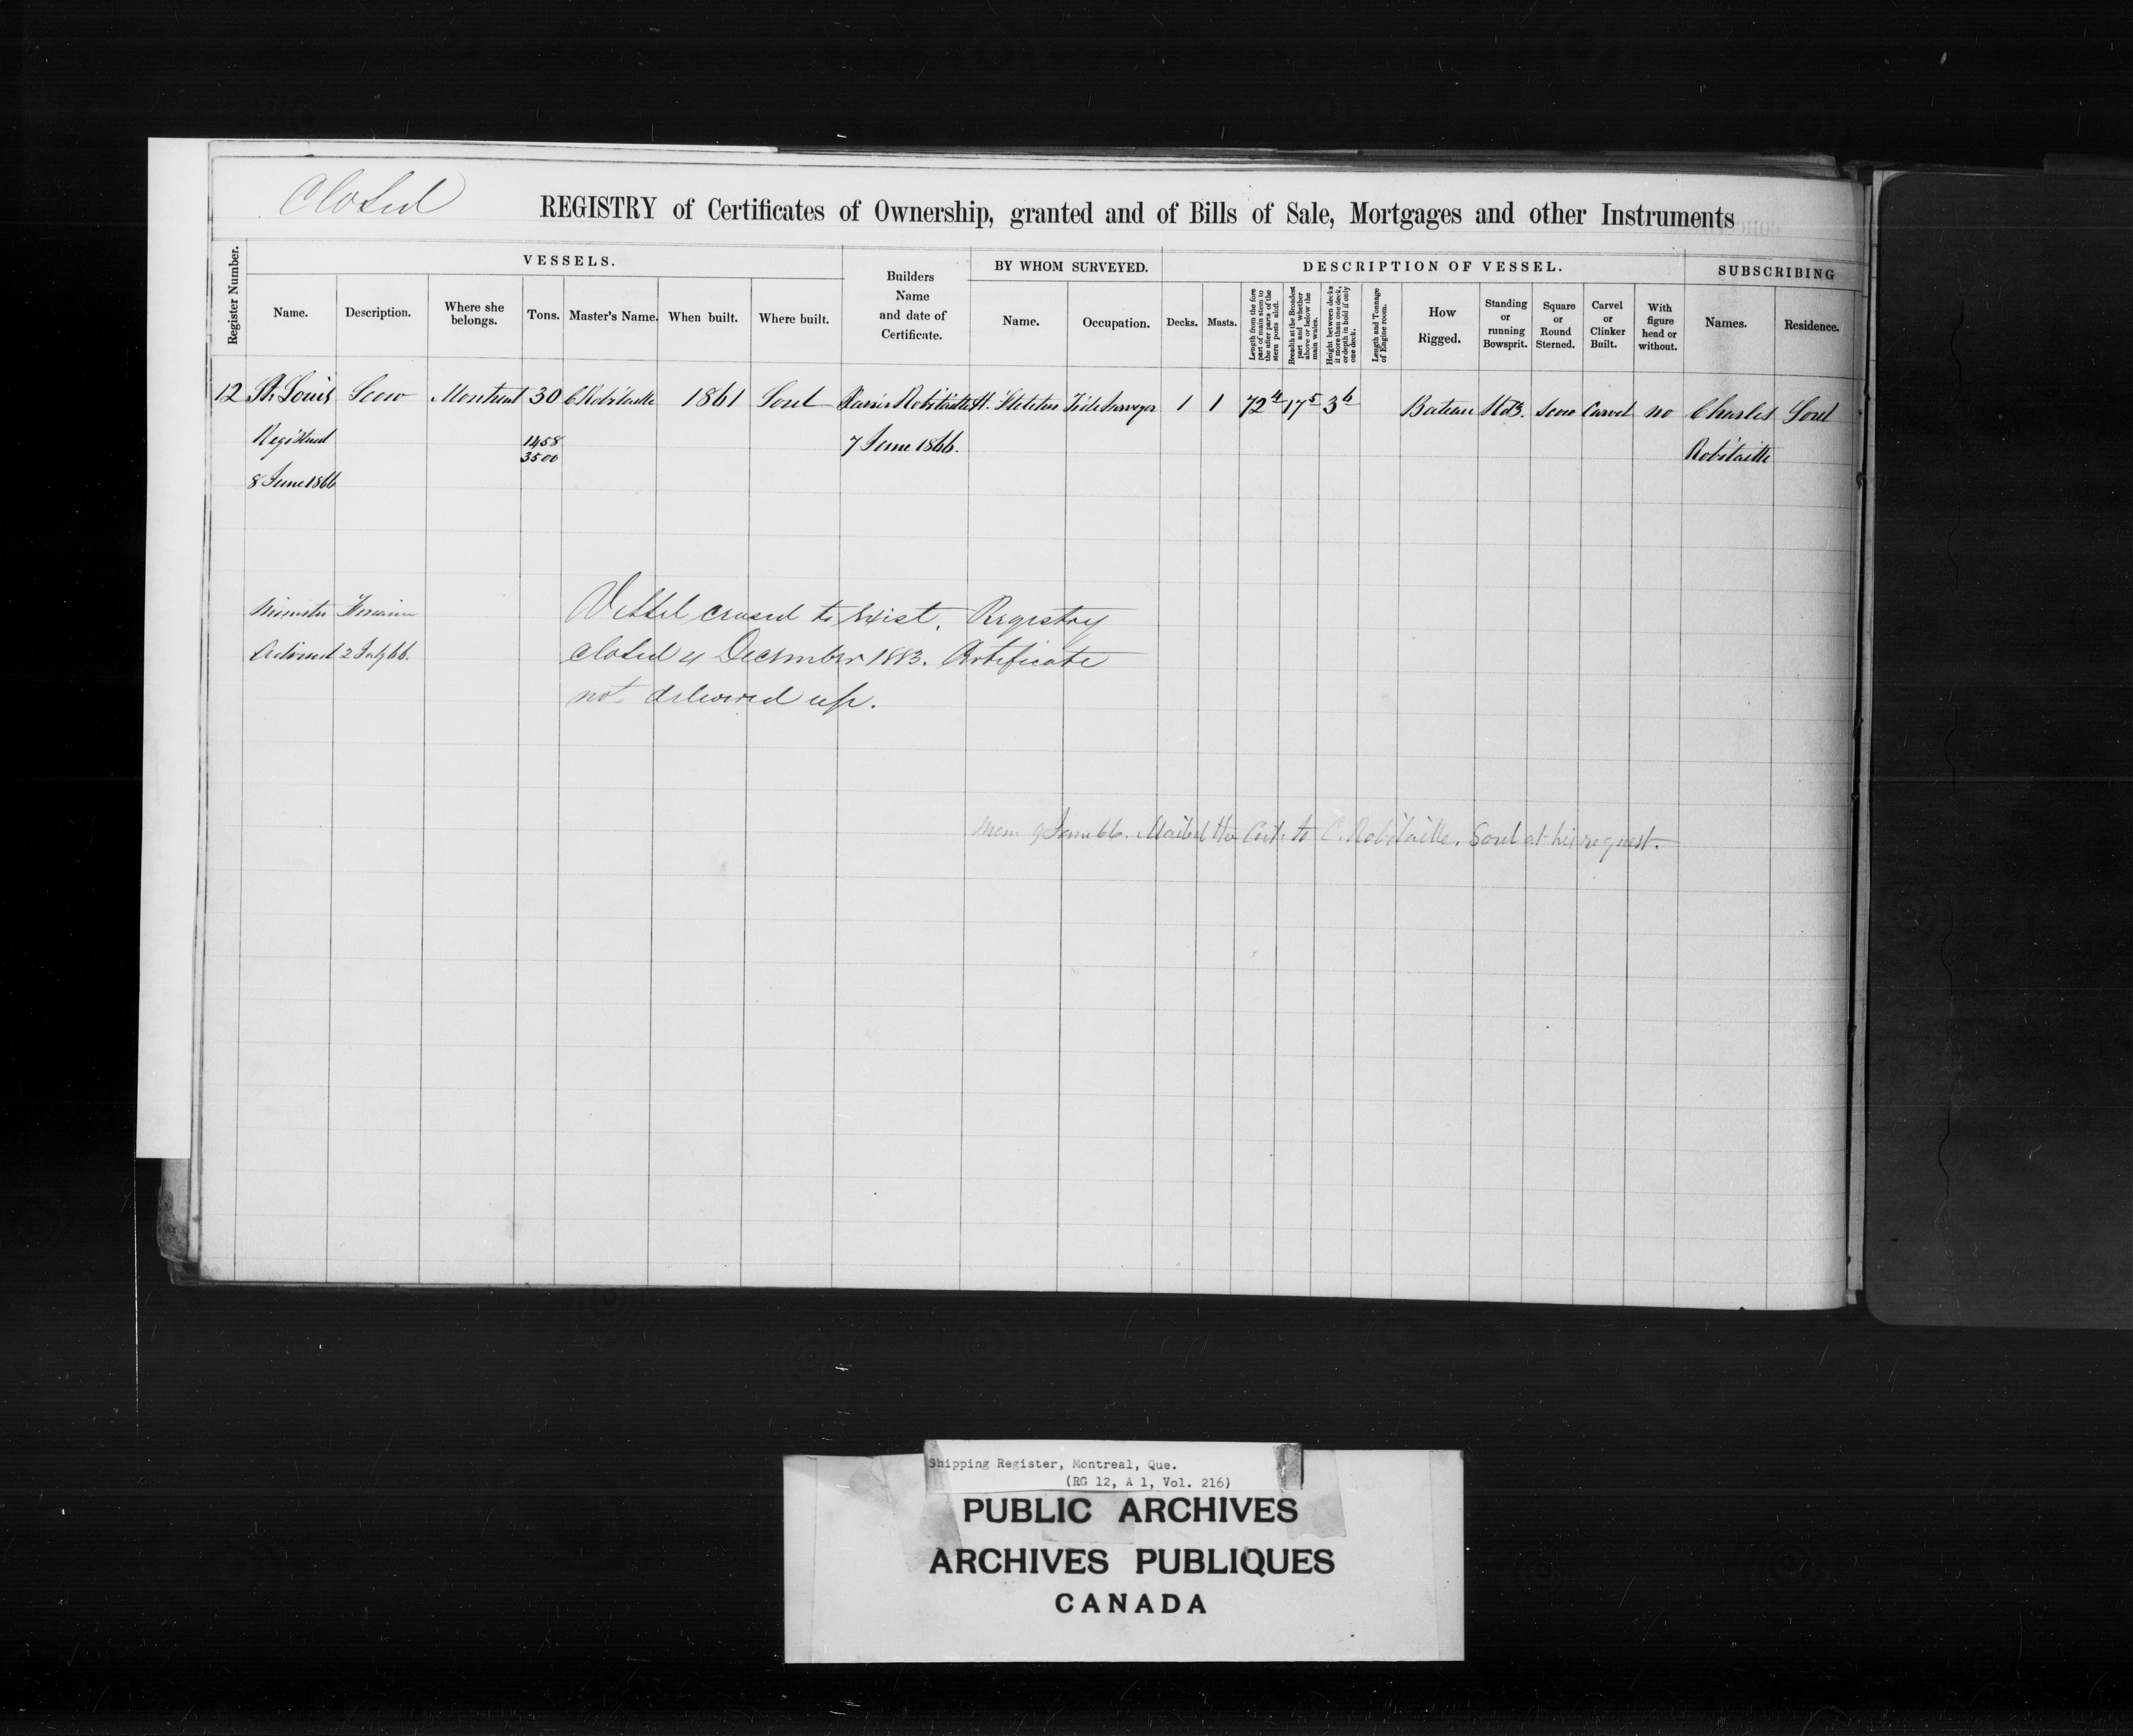 Closed
REGISTRY of Certificates of Ownership, granted and of Bills of Sale, Mortgages and other Instruments
Register Number.
VESSELS.
Name.
Description.
Where she belongs.
Tons.
Master's Name.
When built.
Where built.
Builders Name and date of Certificate.
BY WHOM SURVEYED.
Name.
Occupation.
DESCRIPTION OF VESSEL.
Decks.
Masts.
Length from the fore part of main stem to the after parts of the stern posts aloft.
Breadth at the Broadest part and whether above or below the main wales.
Height between decks if more than one deck, or depth in hold if only one deck.
Length and Tonnage of Engine room.
How Rigged.
Standing or running Bowsprit.
Square or Round Sterned.
Carvel or Clinker Built.
With figure head or without.
SUBSCRIBING
Names.
Residence.
12 St. Louis Scow Montreal 30 C Robitaille 1861 Sorel Robitaille H. Tide Surveyor 1 1 72 4 17 5 3 6 Bateau Scow Carvel no Charles Sorel
Registered 1458 7 June 1866. Robitaille
3500
8 June 1866
Minister Finance
Advised 2 July 66.
Vessel ceased to exist. Registry
closed 4 December 1883. Certificate
not delivered up.
Mem 9 June 66. Mailed the Cert. to C. Robitaille, Sorel at his request.
Shipping Register, Montreal, Que.
(RG 12, A 1, Vol. 216)
PUBLIC ARCHIVES
ARCHIVES PUBLIQUES
CANADA